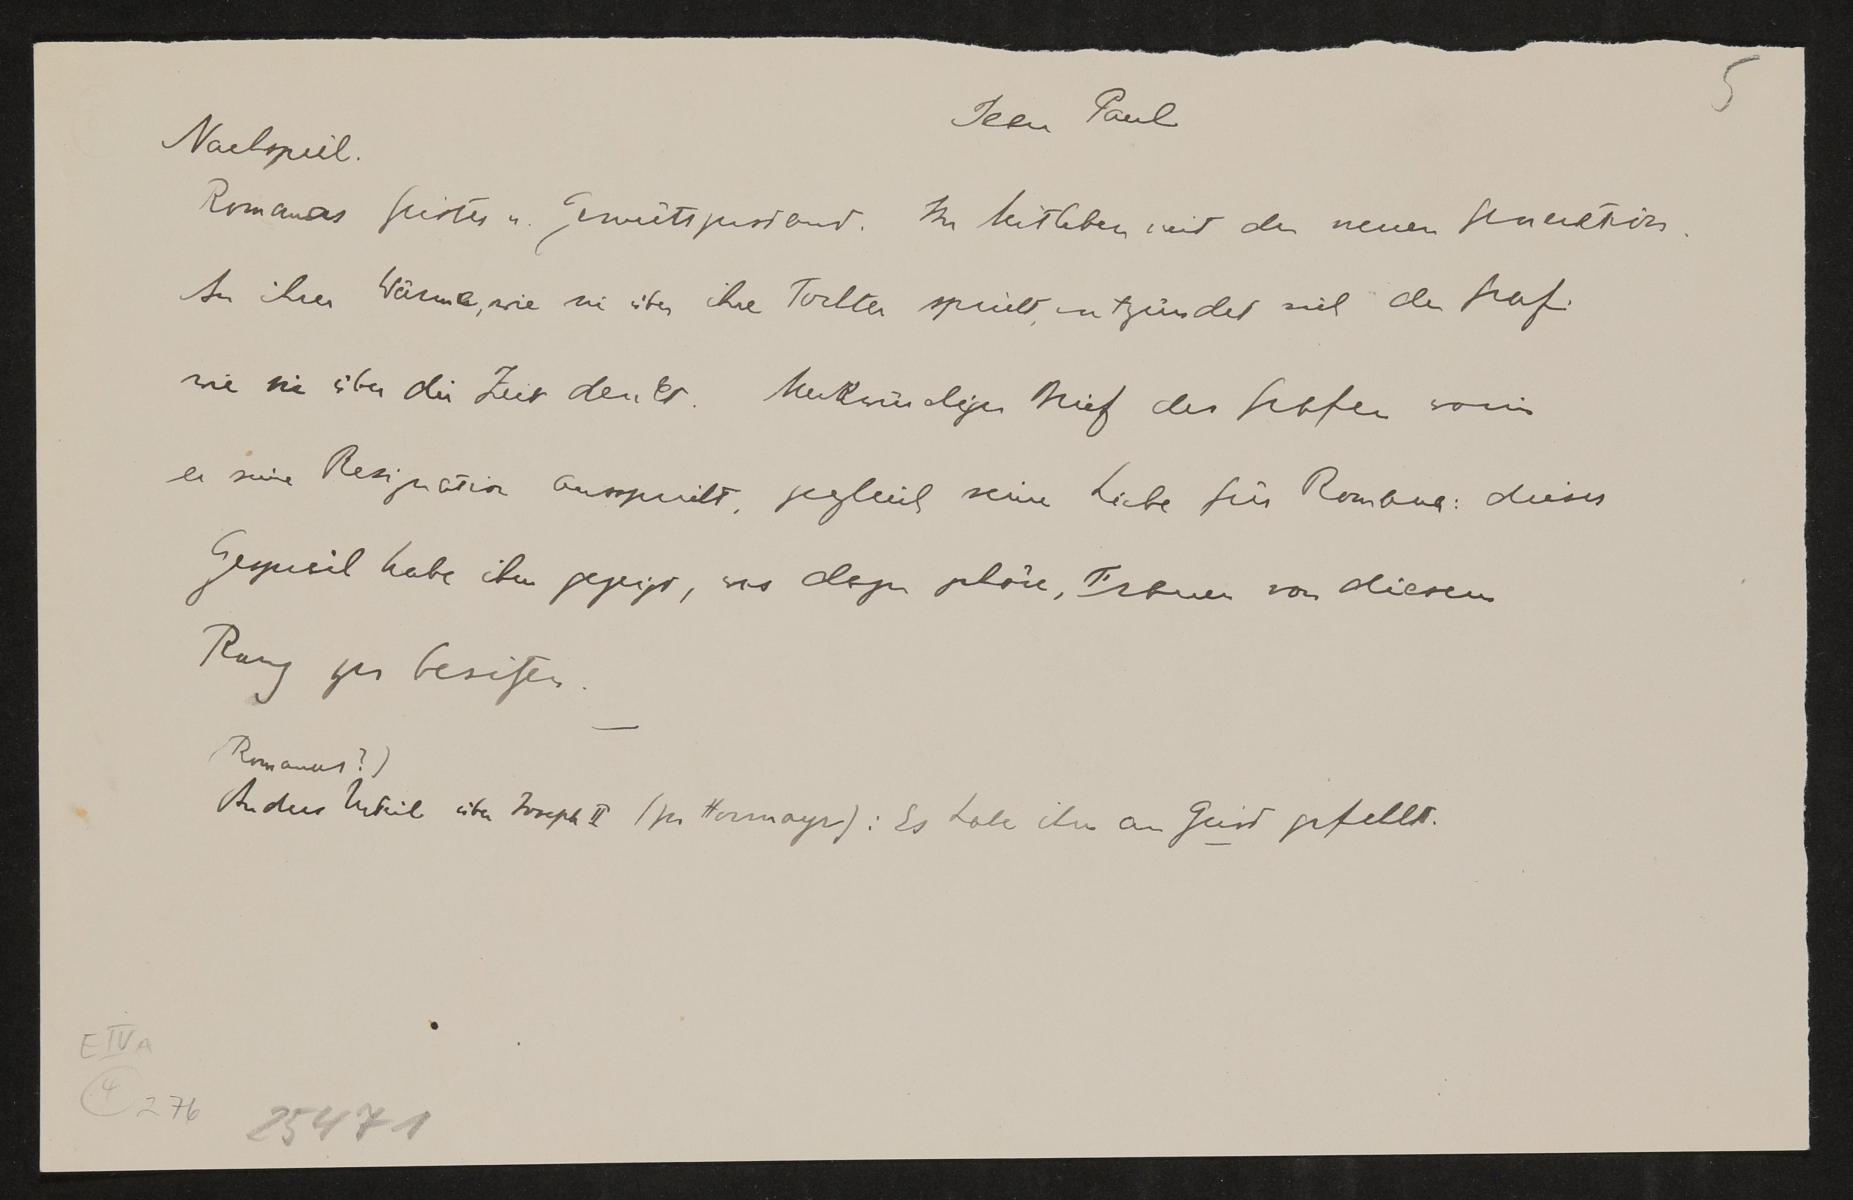 Jean Paul
5
Nachspiel.
Romanas Geistes u. Gemütszustand. Ihr Mitleben mit der neuen Generation.
An ihrer Wärme, wie sie über ihre Tochter spricht, entzündet sich der Graf:
wie sie über die Zeit denkt. Merkwürdiger Brief des Grafen worin
er seine Resignation ausspricht, zugleich seine Liebe für Romana: dieses
Gespräch habe ihm gezeigt, was dazu gehöre, Frauen von diesem
Rang zu besitzen.
(Romanas?)
Andres Urteil über Joseph II (zu Hormayr): Es habe ihm an Geist gefehlt.
E IV A
4 276
25471